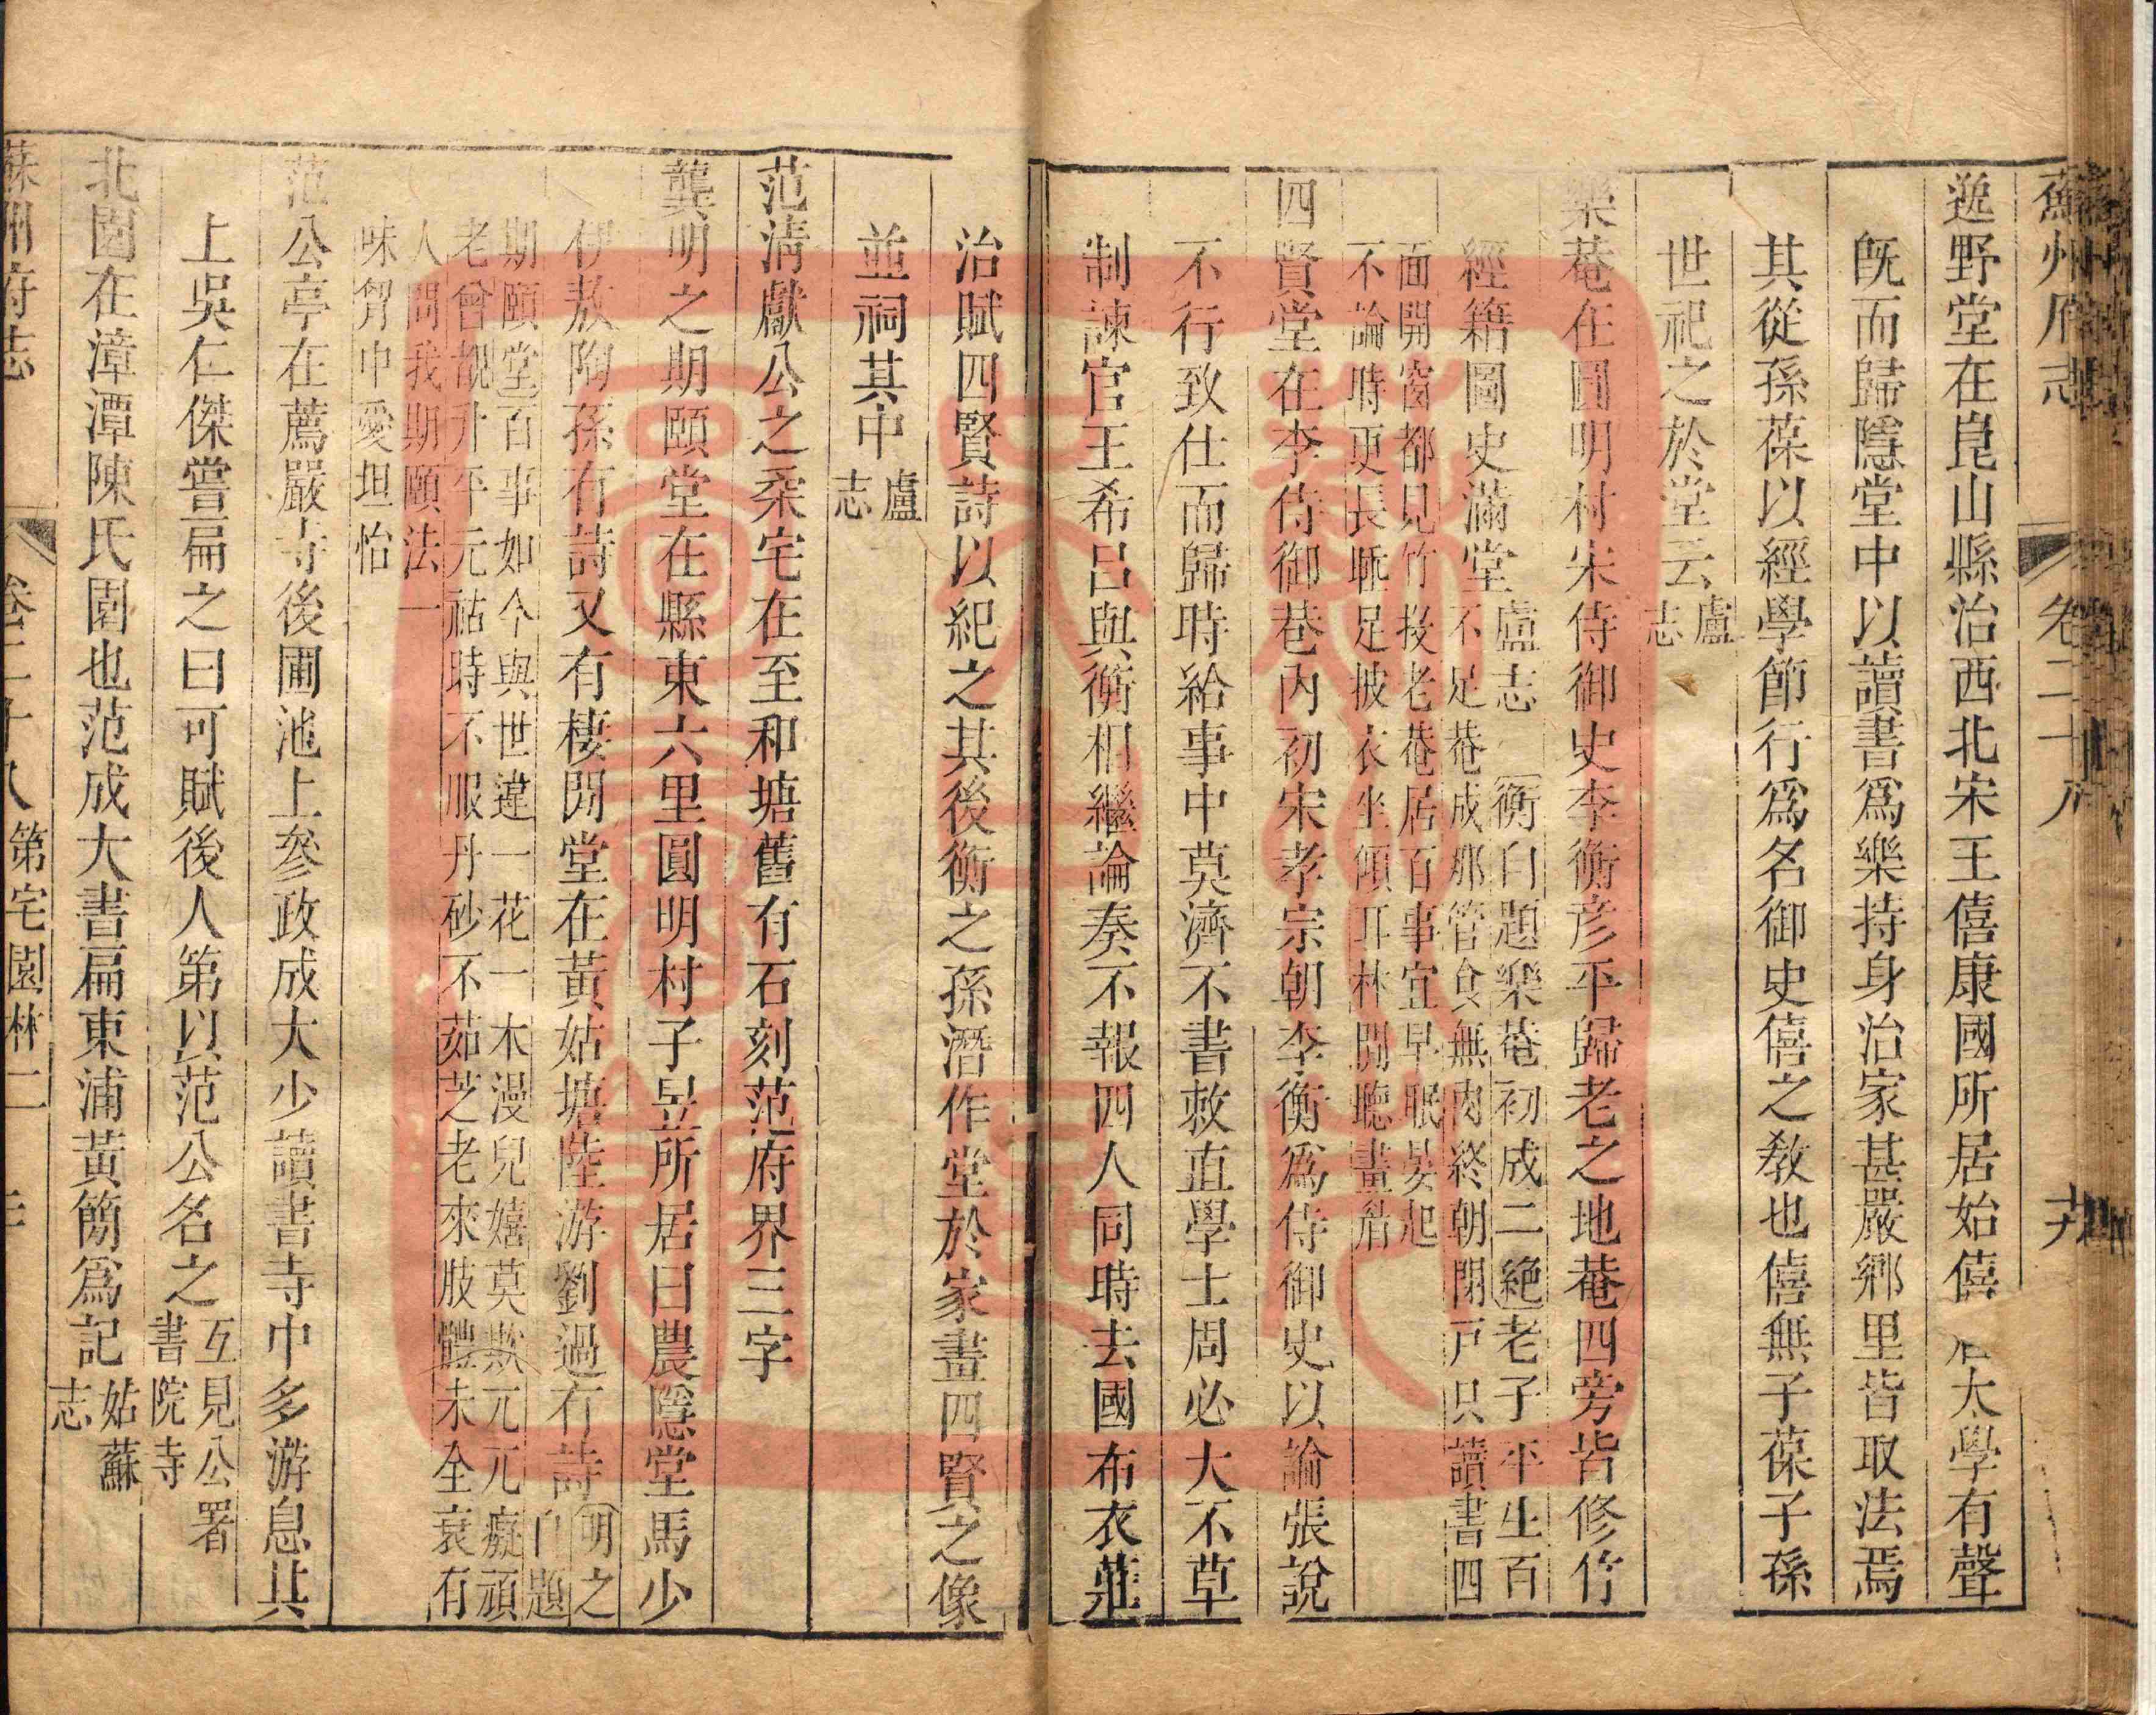 蘇州府志　卷二十八
遯野堂在崑山縣治西北宋王僖康國所居始僖 太學有聲
旣而歸隱堂中以讀書爲樂持身治家甚嚴鄕里皆取法焉
其從孫葆以經學節行爲名御史僖之敎也僖無子葆子孫
世祀之於堂云盧志
樂菴在圓明村宋侍御史李衡彥平歸老之地菴四旁皆修竹
經籍圖史滿堂盧志　衡自題樂菴初成二絶老子平生百
不足菴成那管食無肉終朝閉戸只讀書四
面開窗都見竹投老菴居百事宜早眠晏起
不論時更長睡足披衣坐傾耳林間聽畫眉
四賢堂在李侍御巷內初宋孝宗朝李衡爲侍御史以論張說
不行致仕而歸時給事中莫濟不書敕直學士周必大不草
制諫官王希呂與衡相繼論奏不報四人同時去國布衣莊
治賦四賢詩以紀之其後衡之孫潛作堂於家畫四賢之像
並祠其中盧志
范淸獻公之柔宅在至和塘舊有石刻范府界三字
龔明之期頤堂在縣東六里圓明村子昱所居曰農隱堂馬少
伊敖陶孫有詩又有棲閒堂在黃姑塘陸游劉過有詩明之自題
期頤堂百事如今與世違一花一木漫兒嬉莫欺元元癡頑
老曾覩升平元祐時不服丹砂不茹芝老來肢體未全衰有
人問我期頤法一
味胷中愛坦怡
范公亭在薦嚴寺後圃池上參政成大少讀書寺中多游息其
上吳仁傑嘗扁之曰可賦後人第以范公名之互見公署書院寺
北園在漳潭陳氏園也范成大書扁東浦黃簡爲記姑蘇志
蘇州府志　卷二十八　第宅園林二